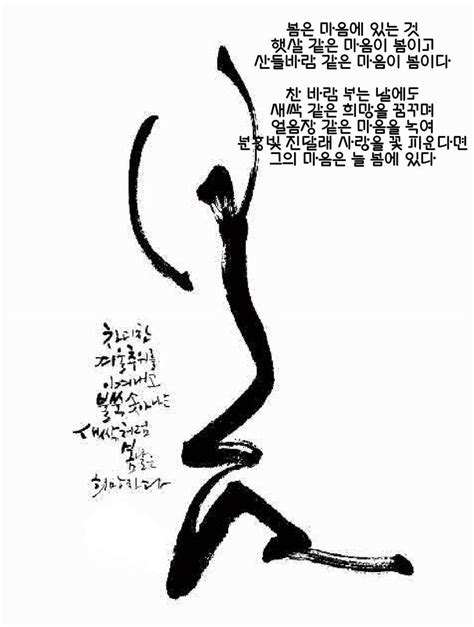 봄은 마음에 있는 것
햇살 같은 마음이 봄이고
산들바람 같은 마음이 봄이다
찬 바람 부는 날에도
새싹 같은 희망을 꿈꾸며
얼음장 같은 마음을 녹여
분홍빛 진달래 사랑을 꽃 피운다면
그의 마음은 늘 봄에 있다
차디찬
겨울추위를
이겨내고
불쑥 솟아나는
새싹처럼
봄날은
희망차다